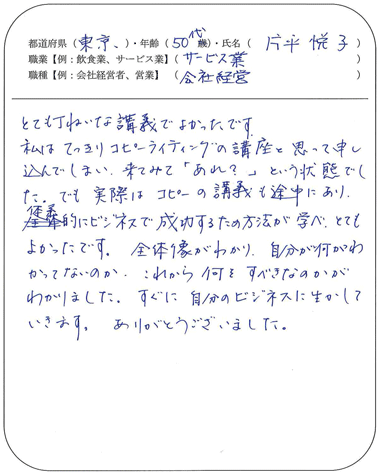 都道府県（ 東京、 ）・年齢（ 50代 歳）・氏名（ 片平 悦子 ）
職業【例：飲食業、サービス業】（ サービス業 ）
職種【例：会社経営者、営業】（ 会社経営 ）
とても丁ねいな講義でよかったです。
私はてっきりコピーライティングの講座と思って申し
込んでしまい、来てみて「あれ？」という状態でし
た。でも実際はコピーの講義も途中にあり、
的にビジネスで成功するための方法が学べ、とても
よかったです。全体像がわかり、自分が何がわ
かってないのか、これから何をすべきなのかが
わかりました。すぐに自分のビジネスに生かして
いきます。ありがとうございました。